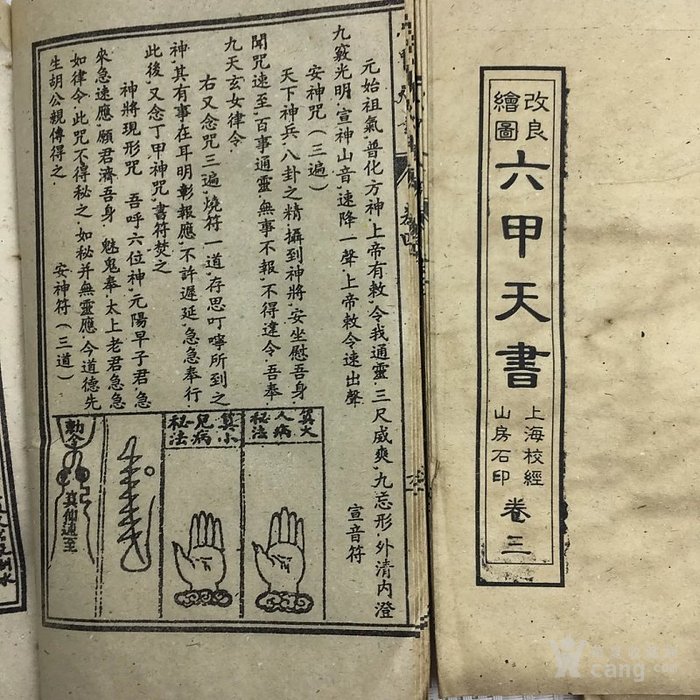 改良
繪圖
六甲天書
上海校經
山房石印
卷三
元始祖氣，普化万神，上帝有敕，令我通靈，三尺威爽，九忘形，外清内澄
九竅光明，宣神山音，速降一聲，上帝敕令速出聲
宣音符
安神咒（三遍）
天下神兵，八卦之精，攝到神將，安坐慰吾身
聞咒速至，百事通靈，無事不報，不得違令，吾奉
九天玄女律令
右又念咒三遍，燒符一道，存思叮嚀所到之
神，其有事在耳明彰報應，不許遲延，急急奉行
此後，又念丁甲神咒，書符焚之
神將現形咒　吾呼六位神，元陽早子君，急
來急速應，願君濟吾身　魅鬼奉，太上老君急急
如律令，此咒不得秘之，如秘并無靈應，今道德先
生胡公親傳得之
安神符（三道）
算大
人病
秘法
算小
兒病
秘法
勅令
真仙通至